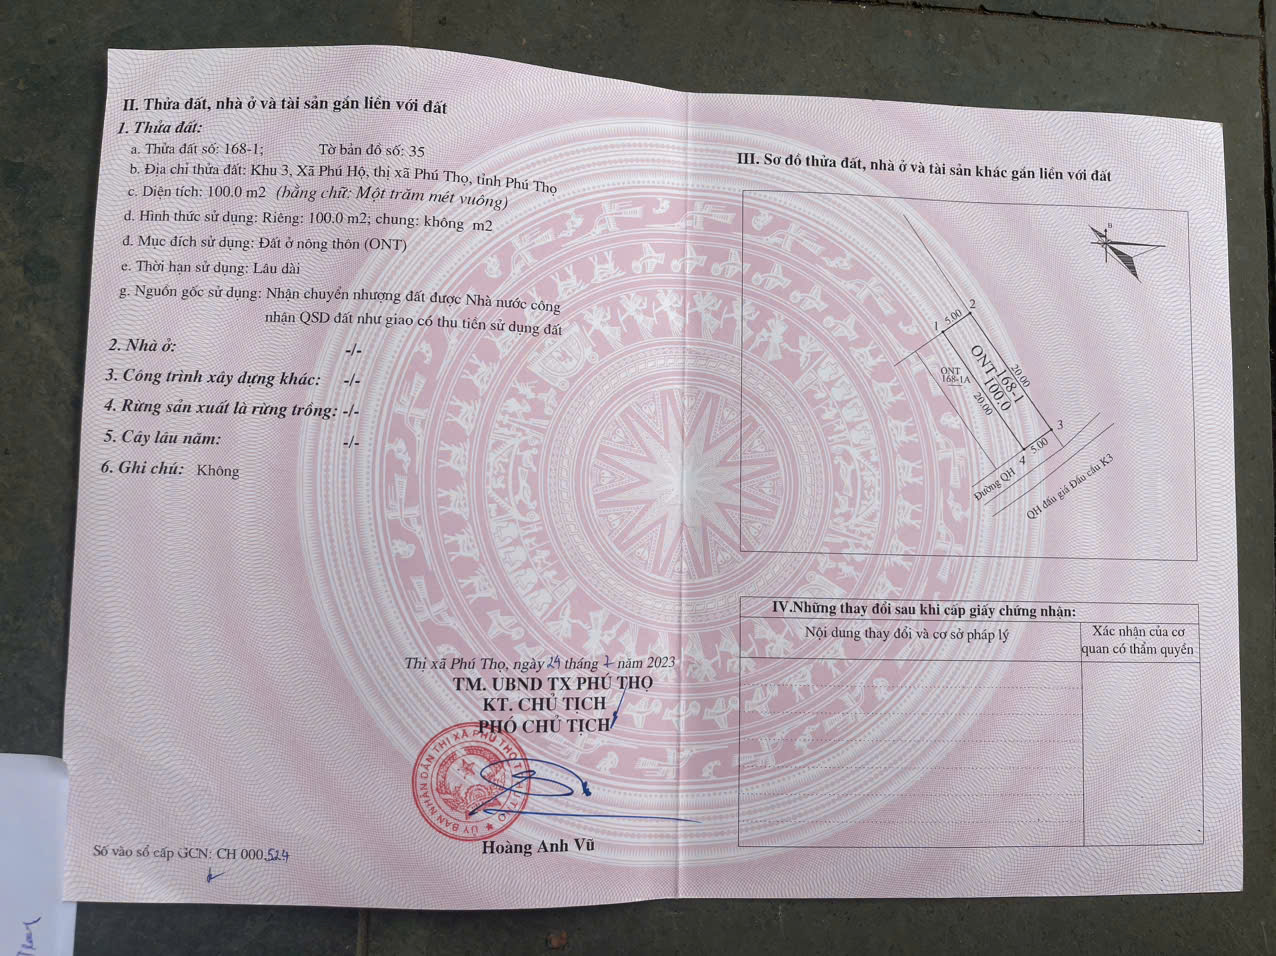 II. Thửa đất, nhà ở và tài sản gắn liền với đất
1. Thửa đất:
a. Thửa đất số: 168-1; Tờ bản đồ số: 35
b. Địa chỉ thửa đất: Khu 3, Xã Phú Hộ, thị xã Phú Thọ, tỉnh Phú Thọ
c. Diện tích: 100.0 m2 (bằng chữ: Một trăm mét vuông)
d. Hình thức sử dụng: Riêng: 100.0 m2; chung: không m2
đ. Mục đích sử dụng: Đất ở nông thôn (ONT)
e. Thời hạn sử dụng: Lâu dài
g. Nguồn gốc sử dụng: Nhận chuyển nhượng đất được Nhà nước công
nhận QSD đất như giao có thu tiền sử dụng đất
2. Nhà ở: -/-
3. Công trình xây dựng khác: -/-
4. Rừng sản xuất là rừng trồng: -/-
5. Cây lâu năm: -/-
6. Ghi chú: Không
Thị xã Phú Thọ, ngày 24 tháng 7 năm 2023
TM. UBND TX PHÚ THỌ
KT. CHỦ TỊCH
PHÓ CHỦ TỊCH
ỦY BAN NHÂN DÂN THỊ XÃ PHÚ THỌ
Hoàng Anh Vũ
Số vào sổ cấp GCN: CH 000524
III. Sơ đồ thửa đất, nhà ở và tài sản khác gắn liền với đất
B
2
5.00
1
20.00
ONT 168-1
100.0
ONT
168-1A
20.00
3
5.00
4
Đường QH
QH đấu giá Đầu cầu K3
IV.Những thay đổi sau khi cấp giấy chứng nhận:
Nội dung thay đổi và cơ sở pháp lý
Xác nhận của cơ
quan có thẩm quyền